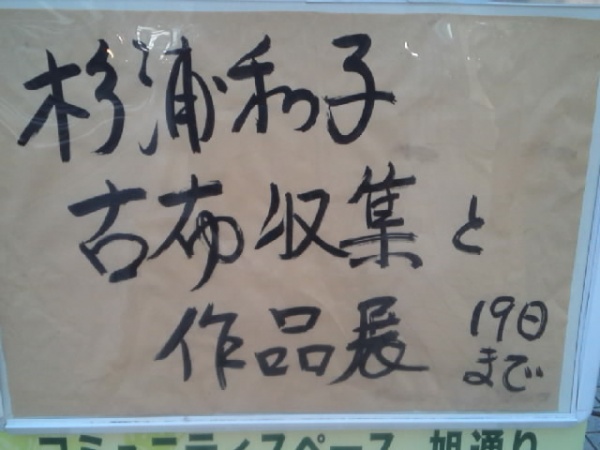 杉浦和子
古布収集と
作品展 19日
まで
コミュニティスペース 旭通り